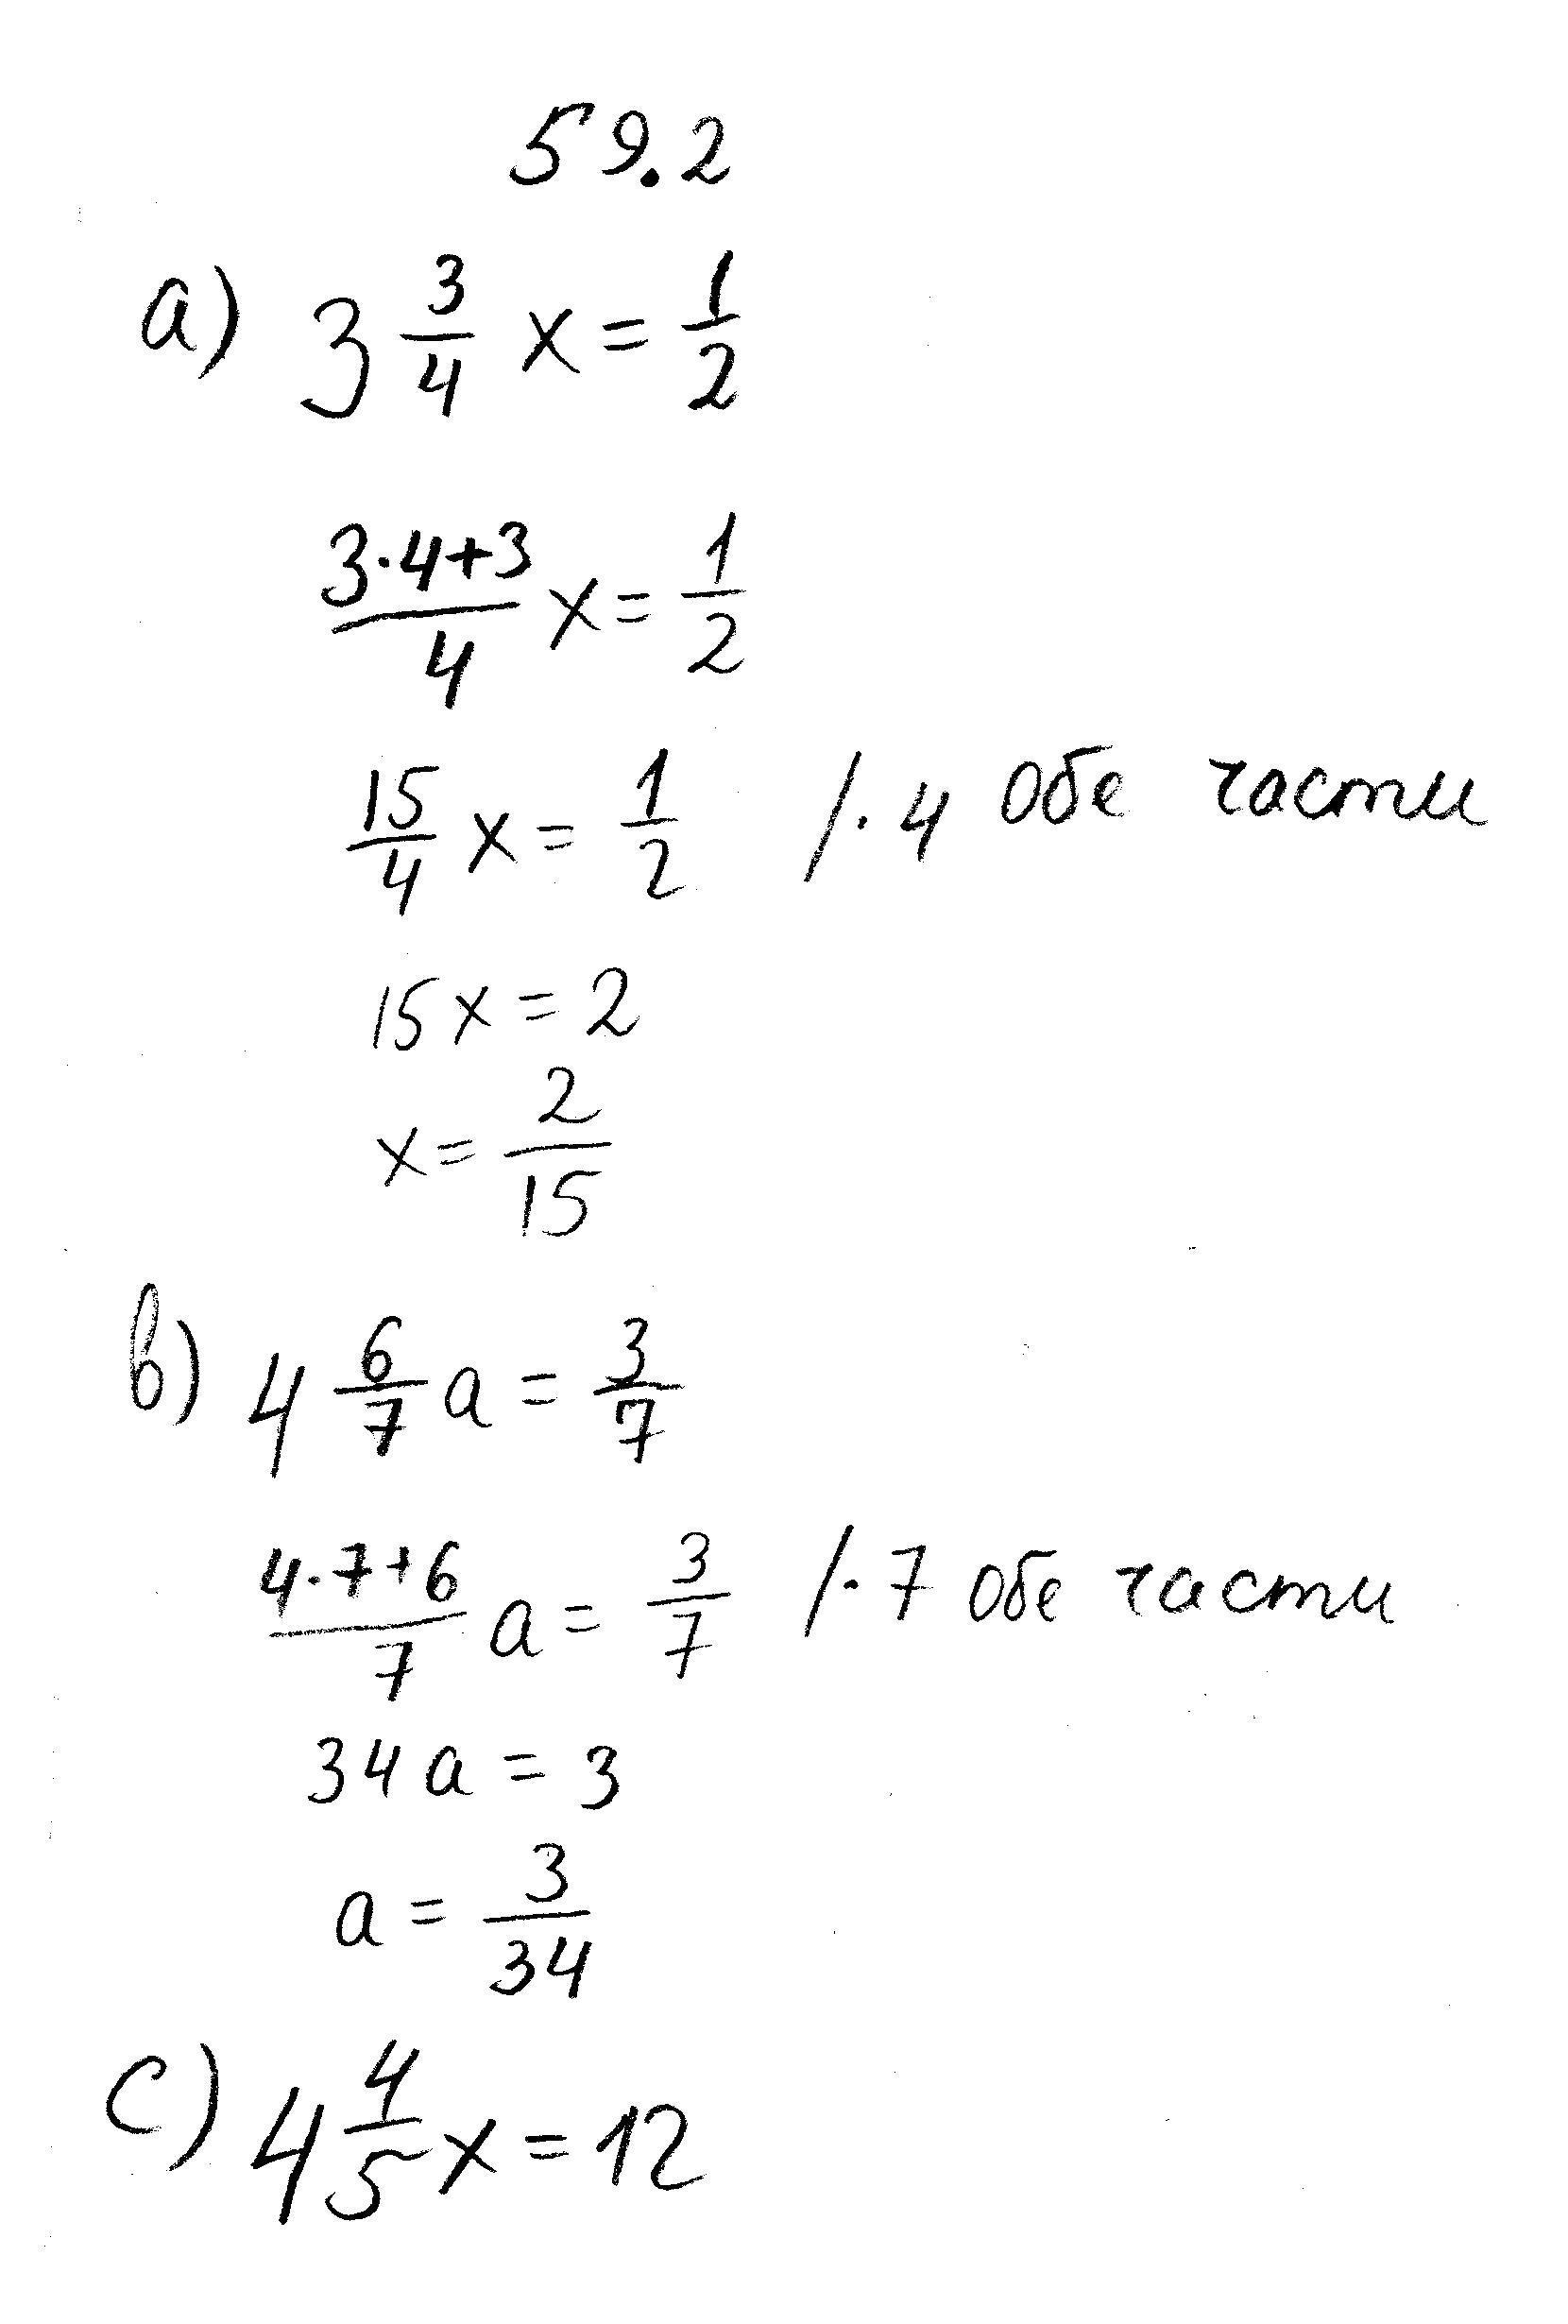 59.2
a) 3 3/4 x = 1/2
3·4+3/4 x = 1/2
15/4 x = 1/2 /·4 обе части
15x = 2
x = 2/15
b) 4 6/7 a = 3/7
4·7+6/7 a = 3/7 /·7 обе части
34a = 3
a = 3/34
c) 4 4/5 x = 12